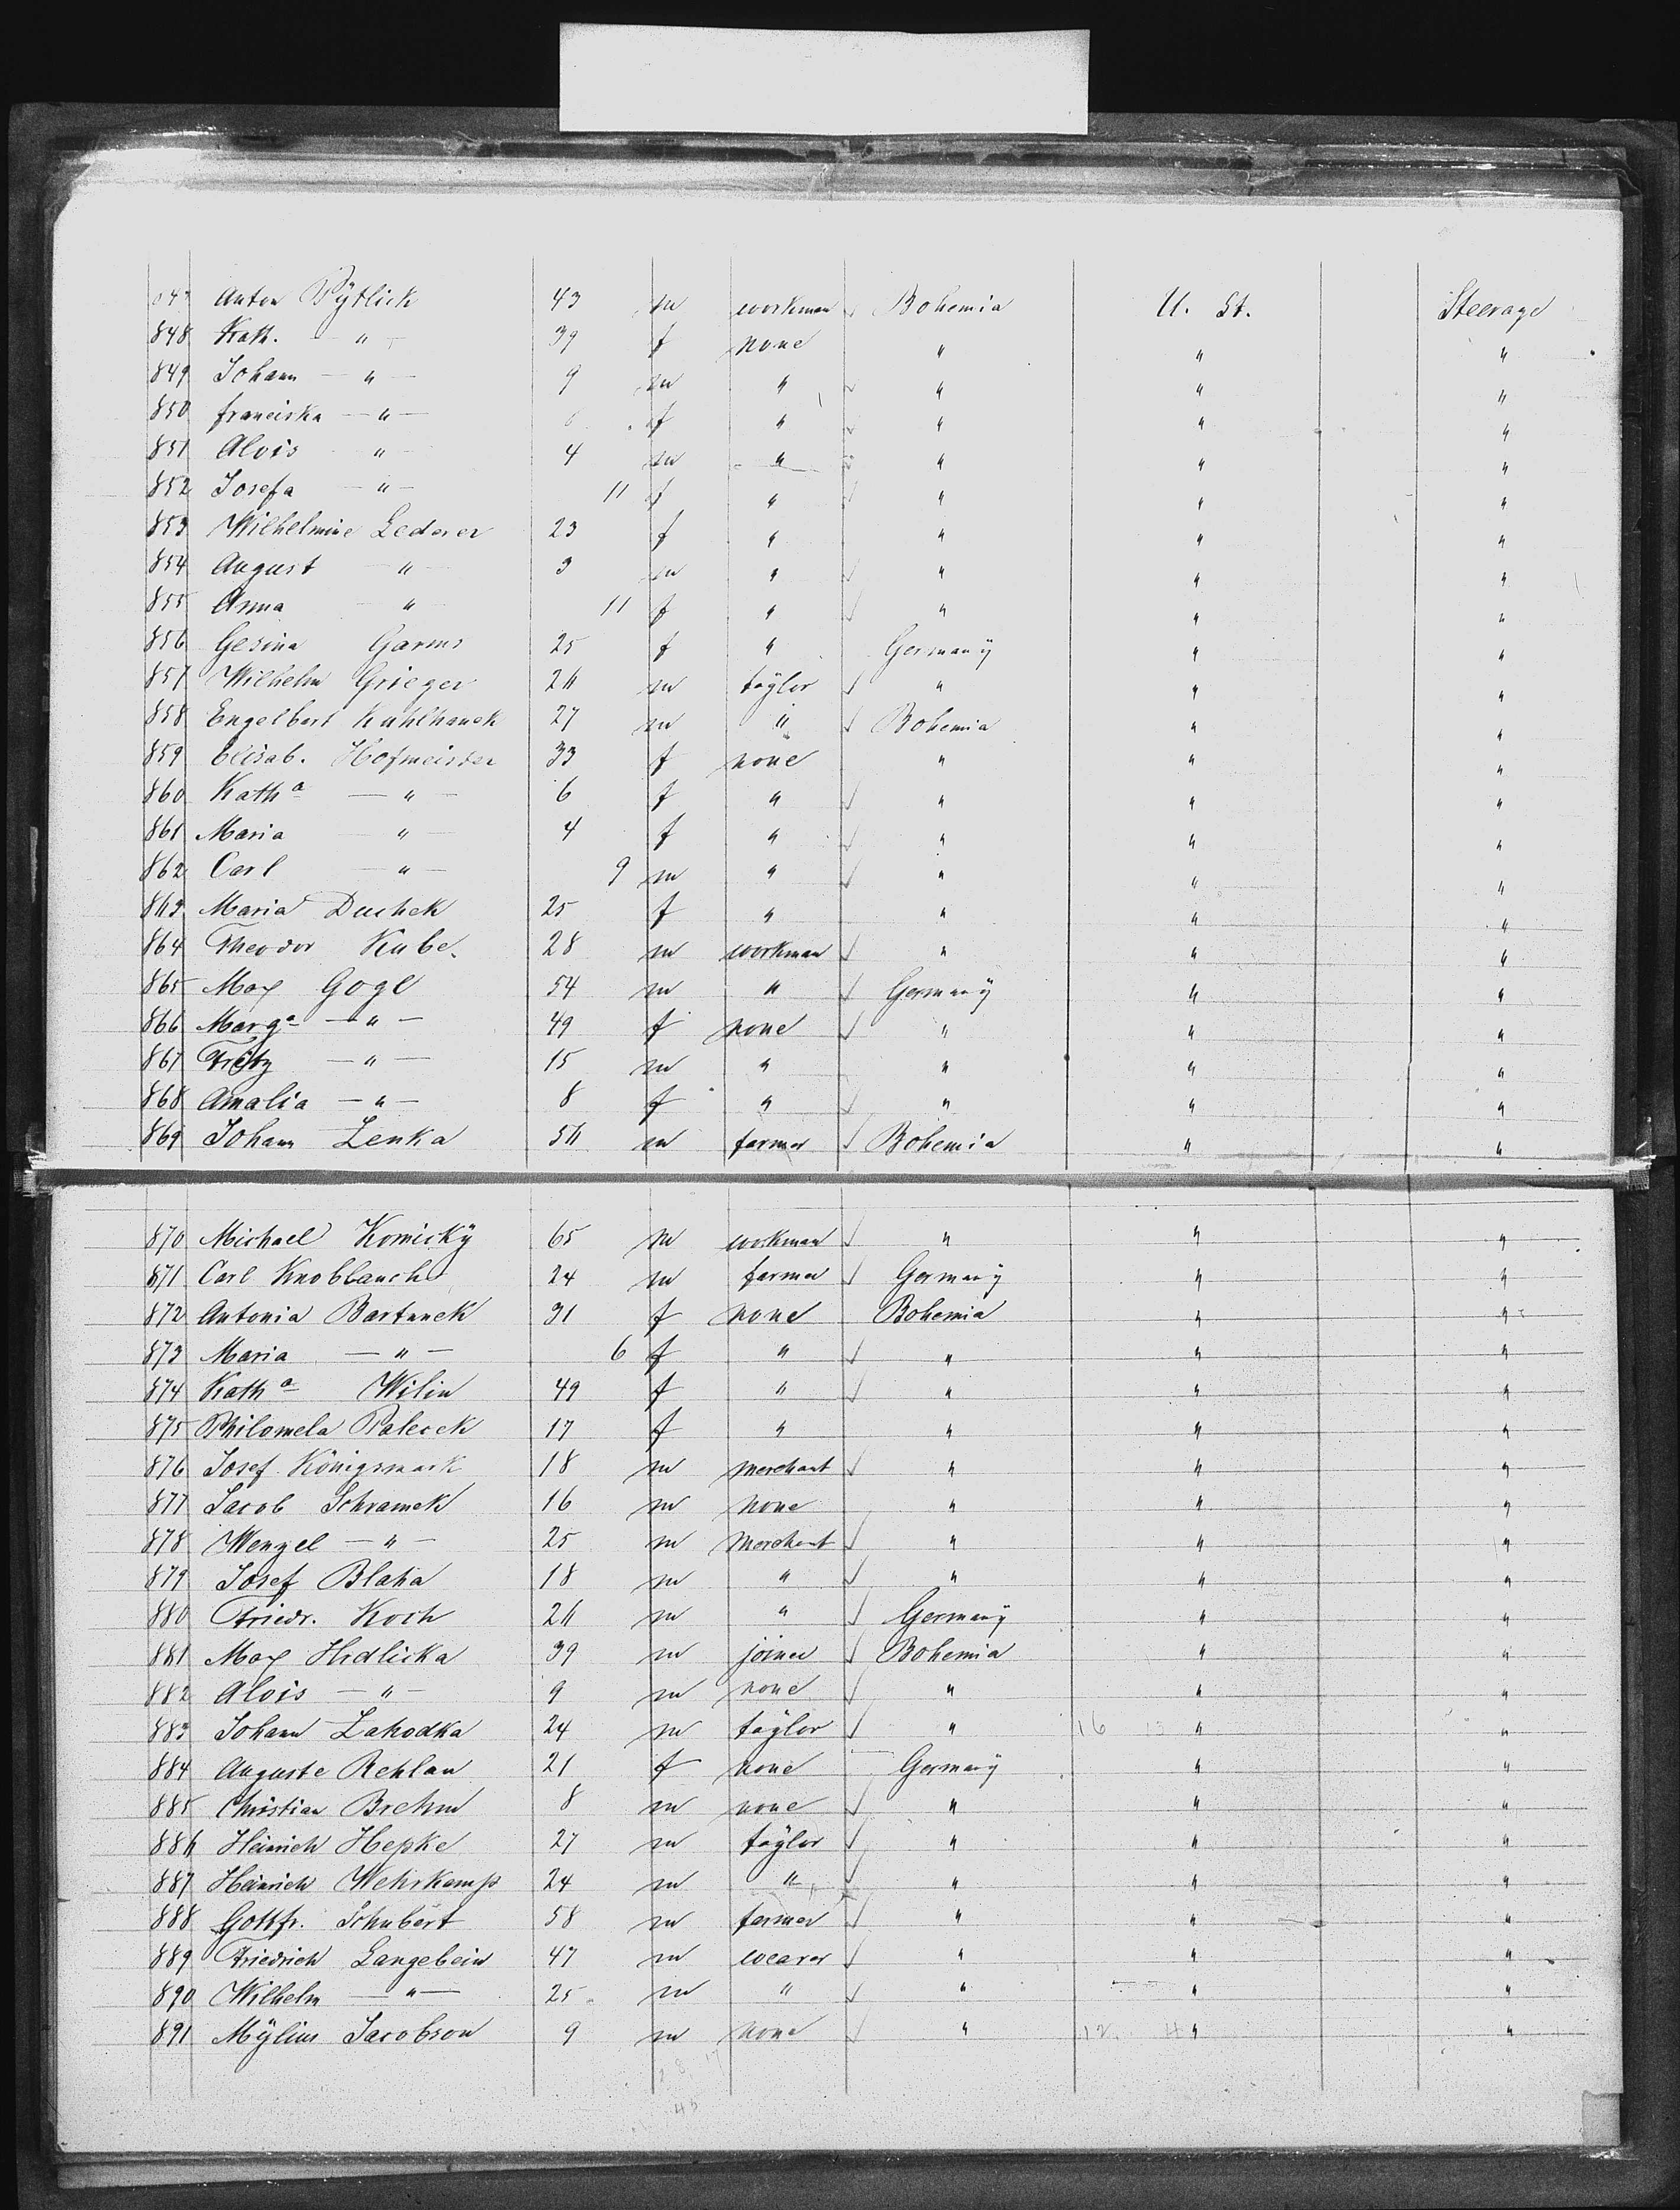 Anton Pytlick 43 m workman Bohemia U. St. Steerage
848 Kath. " 39 f none " " "
849 Johann — " — 9 m " " " "
850 Franciska — " — f " " " "
851 Alois " 4 m " " " "
852 Josefa — " — 11 f " " " "
853 Wilhelmine Lederer 23 f " " " "
854 August — " — 3 m " " " "
855 Anna " 11 f " " " "
856 Gesina Garms 25 f " Germany " "
857 Wilhelm Grieger 26 m taylor " " "
858 Engelbert Kuhlhanek 27 m " Bohemia " "
859 Elisab. Hofmeister 33 f none " " "
860 Katha — " — 6 f " " " "
861 Maria — " — 4 f " " " "
862 Carl — " — 9 m " " " "
863 Maria Duchek 25 f " " " "
864 Theodor Kube. 28 m workman " " "
865 Max Gogl 54 m " Germany " "
866 Marga — " — 49 f none " " "
867 Fritz — " — 15 m " " " "
868 Amalia — " — 8 f " " " "
869 Johann Zenka 56 m farmer Bohemia " "
870 Michael Komicky 65 m workman " " "
871 Carl Knoblauch 24 m farmer Germany " "
872 Antonia Bartunek 31 f none Bohemia " "
873 Maria — " — 6 f " " " "
874 Katha Wilin 49 f " " " "
875 Philomela Palecek 17 f " " " "
876 Josef Königsmark 18 m merchant " " "
877 Jacob Schramek 16 m none " " "
878 Wenzel — " — 25 m merchant " " "
879 Josef Blaha 18 m " " " "
880 Friedr. Koch 26 m " Germany " "
881 Max Hrdlicka 39 m joiner Bohemia " "
882 Alois — " — 9 m none " " "
883 Johann Zahodka 24 m taylor " 16 13 " "
884 Auguste Rehlau 21 f none Germany " "
885 Christian Brehm 8 m none " " "
886 Heinrich Hepke 27 m taylor " " "
887 Heinrich Wehrkamp 24 m " " " "
888 Gottfr. Schubert 58 m farmer " " "
889 Friedrich Langebein 47 m weaver " " "
890 Wilhelm — " — 25 m " " " "
891 Mylius Jacobson 9 m none " 12 4 " "
8 17
45